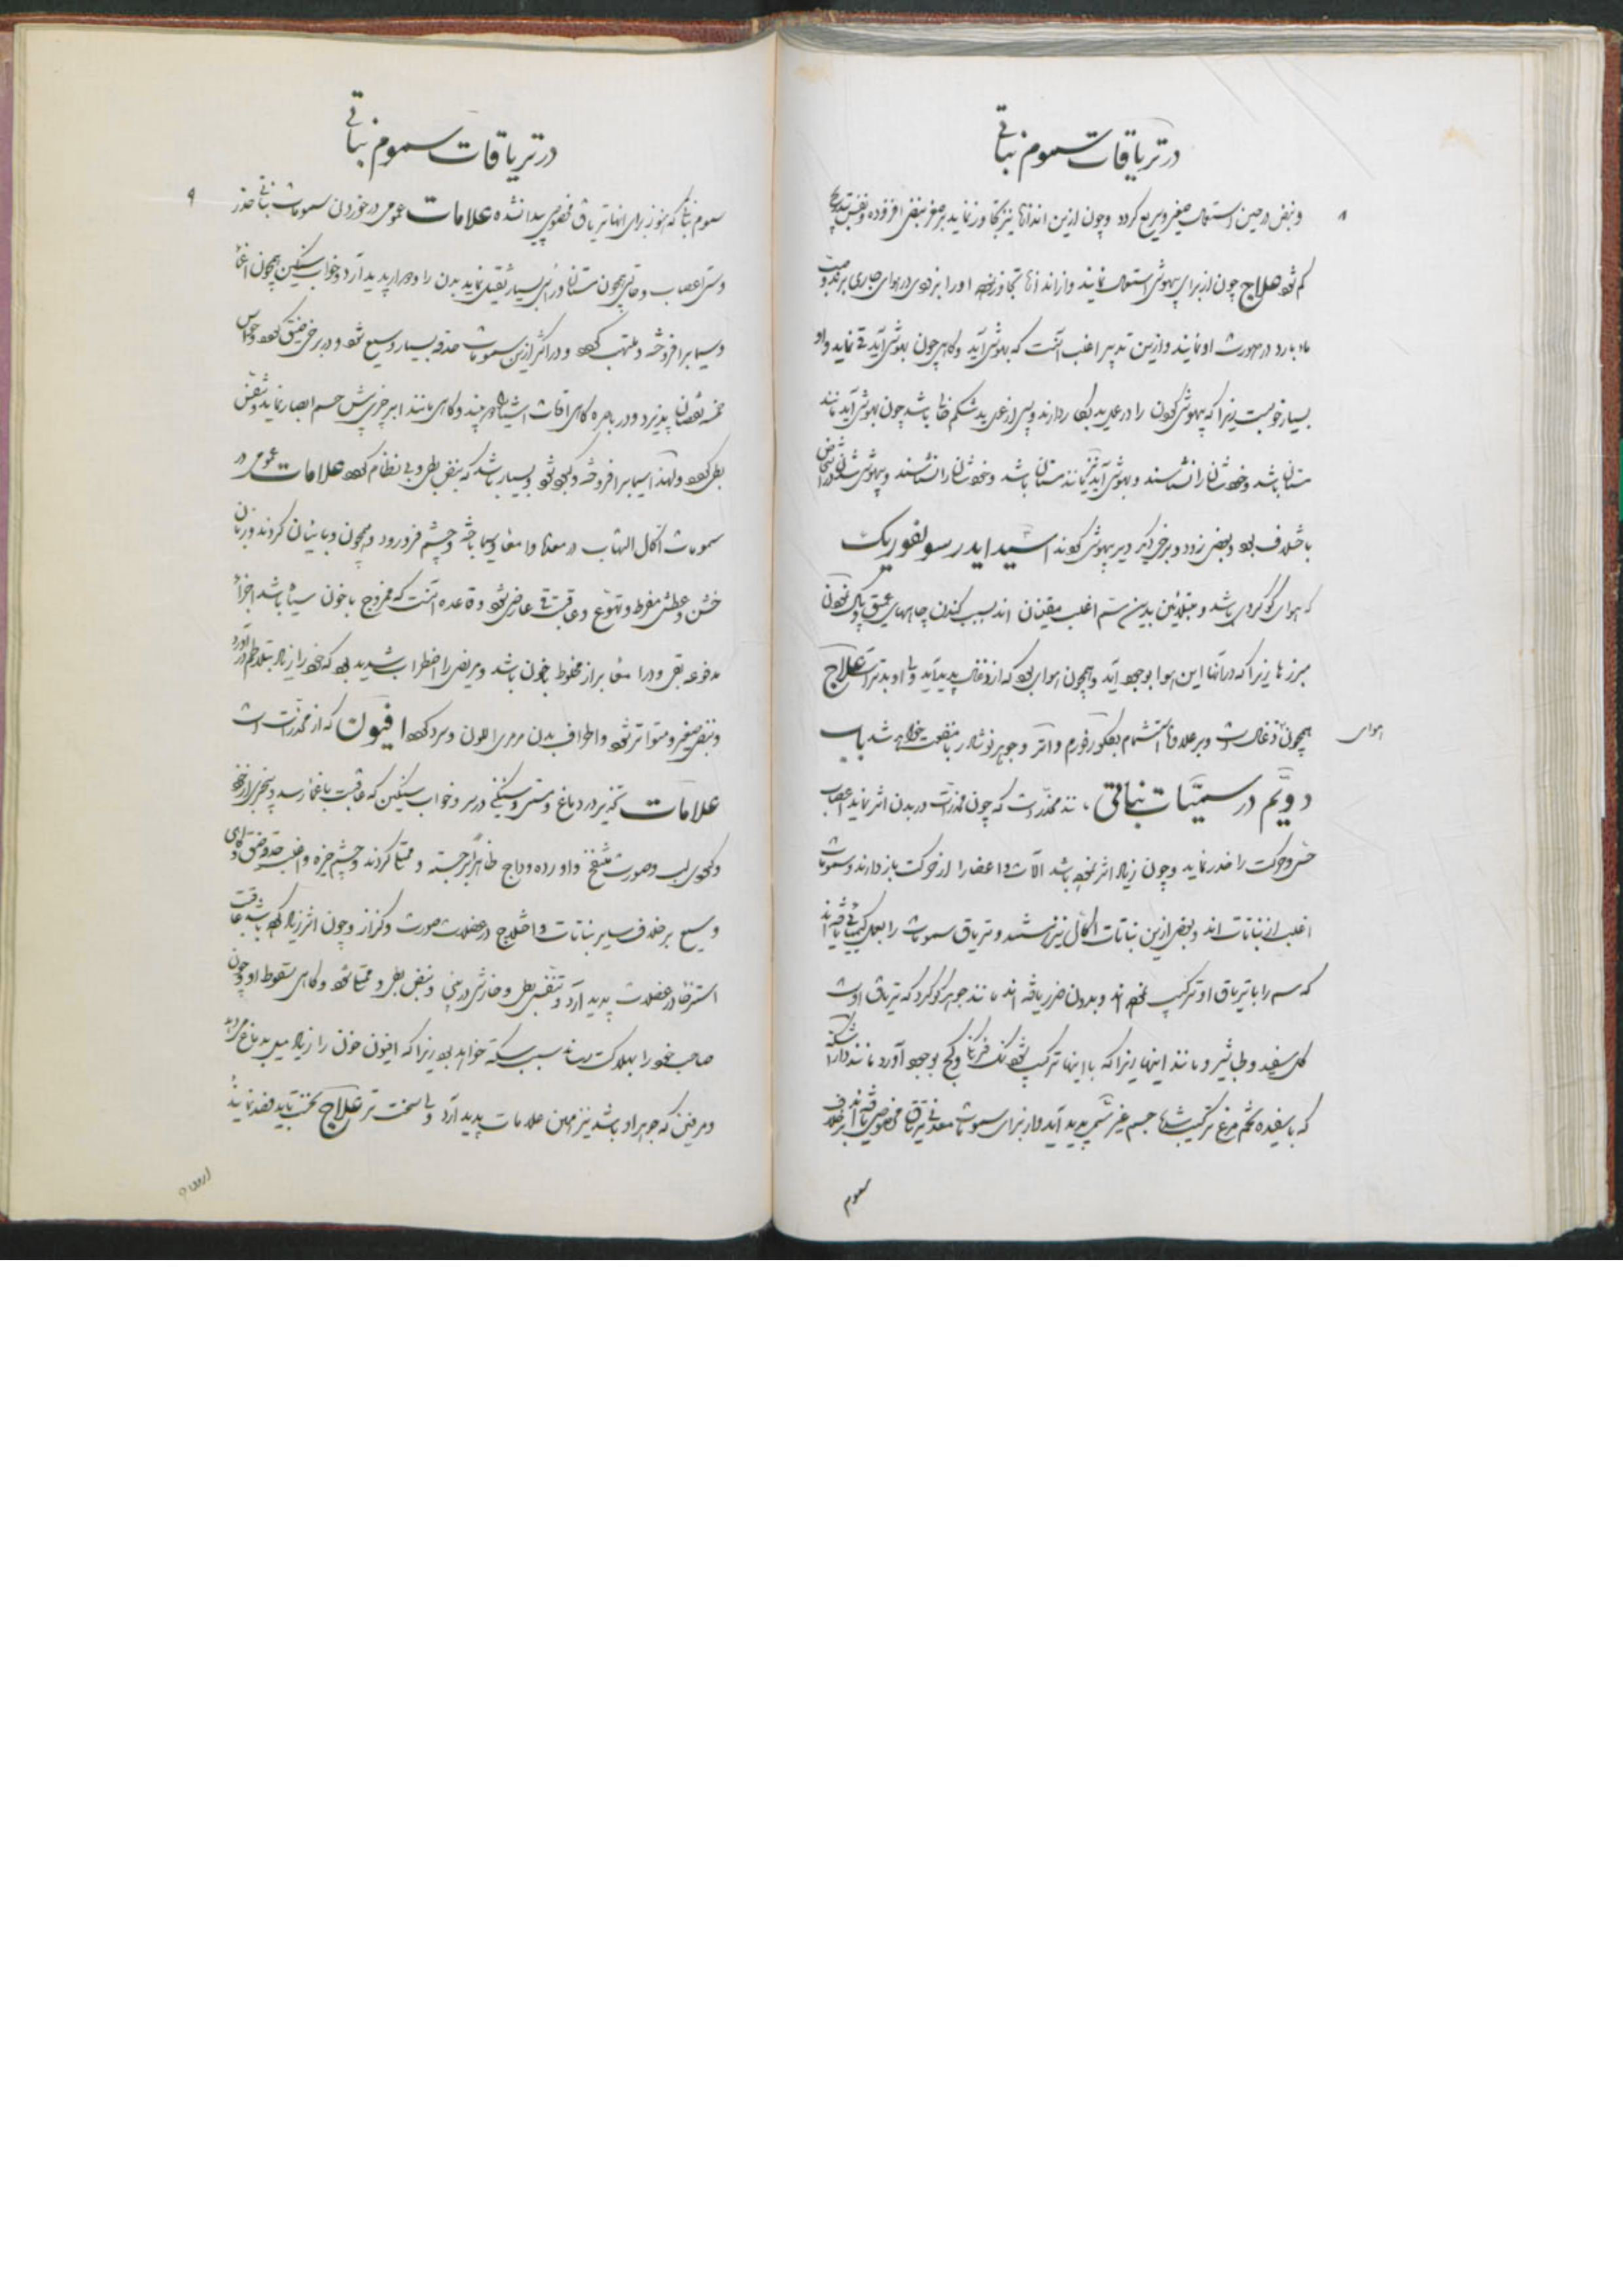 در تریاقات سموم نباتی
۸
و نبض در حین استعمال صغیر و سریع گردد و چون ازین اندازها نیز تجاوز نماید بر صغر نبض افزوده و نفس بتدریج
کم شود علاج چون از برای بیهوشی استعمال نمایند و از اندازها تجاوز نموده او را بزودی در هوای جاری برده و
ماء بارد در صورت او نمایند و ازین تدبیر اغلب آنست که بهوش آید و گاهی چون بهوش آید قی نماید و او
بسیار خوبست زیرا که بیهوشی کنون را در عمل ید بکار دارند و پس از عمل ید شکم خالی باشد چون بهوش آید مانند
مستان باشد و خود شانرا نشناسند و بیهوشی
باختلاف بود و بعضی زود و برخی دیگر دیر بیهوش گردند اسید ایدرسولفوریک
که هوای گوگردی باشد و مبتلائین بدین سم اغلب مقنیان اند بسبب کندن چاههای عمیق و پاک نمودن
مبرزها زیرا که در آنها این هوا بوجود آید و همچون هوایی بود که از ذغال پدید آید و یا او بدتر است علاج
همچون ذغال است و بر علاوه استشمام بکلورفورم و اتر و جوهر نوشادر با منفعت خواهد شد باب
هوای
دویّم در سمیّات نباتی مانند مخدرات که چون مخدرات در بدن اثر نماید اعصاب
حس و حرکت را خدر نماید و چون زیاد اثر نموده باشد آلات و اعضا را از حرکت باز دارند و سمومات
اغلب از نباتات اند و بعضی ازین نباتات اکال نیز هستند و تریاق سمومات را بعمل کیمیائی یافته اند
که سم را با تریاق او ترکیب نموده اند و بدون ضرر یافته اند مانند جوهر گوگرد که تریاق اوست
گل سفید و طباشیر و مانند اینها زیرا که با اینها ترکیب شود نمک فرنگی و گچ بوجود آورد مانند داراشکنه
که با سفیده تخم مرغ ترکیب شده جسم غیر سمی پدید آید و از برای سمومات معدنی تریاق مخصوص یافته اند برخلاف
سموم
در تریاقات سموم نباتی
۹
سموم نباتی که هنوز برای انها تریاق مخصوصی پیدا نشده علامات عمومی در خوردن سمومات نباتی خدر
و سستی اعصاب و حالتی همچون مستان و در سر بسیار ثقیل نماید بدن را و دوار پدید آرد و خواب سنگین همچون اغما
و سیما برافروخته و ملتهب گردد و در اکثر ازین سمومات حدقه بسیار وسیع شود و در برخی ضیق گردد و حواس
خمسه نقصان پذیرد و در باصره گاهی افات اشیا دو چند و گاهی مانند ابر چیزی پیش چشم ابصار نماید و تنفس
بطی گردد و لهذا سیما برافروخته و کبود شود و بسیار باشد که نبض بطی و بی نظام گردد علامات عمومی در
سمومات اکال التهاب در معده و امعا و سیما باخته و چشم فرو رود و همچون وبائیان گردند و زبان
خشن و عطش مفرط و تهوع و عاقبت قی عارض شود و قاعده آنست که ممزوج با خون سیاه باشد اجزاء
مدفوعه بقی و در امعا براز مخلوط بخون باشد و مریض را اضطراب شدید بود که خود را زیاد بتلاطم درآورد
و نبض صغیر و متواتر شود و اطراف بدن مرمری اللون و سرد گردد افیون که از مخدرات است
علامات تخدیر در دماغ و مستی و سنگینی در سر و خواب سنگین که عاقبت باغما رسد و بیخبری از خود
و کبودی لب و صورت منتفخ و اورده وداج ظاهراً برجسته و ممتلا گردند و چشم خیره و اغلب حدقه ضیق و گاهی
وسیع برخلاف سایر نباتات و اختلاج در عضلات صورت و کزاز و چون اثر زیاد کرده باشد عاقبت
استرخا در عضلات پدید آرد و تنفس بطی و خارش در بینی و نبض بطی و ممتلا شود و گاهی سقوط او و چون
صاحب خود را بهلاکت رساند سبب سکته خواهد بود زیرا که افیون خون را زیاد میل بدماغ میدهد
و مرفین که جوهر او باشد نیز همین علامات پدید آرد و یا سخت تر علاج نخست باید فصد نمایند